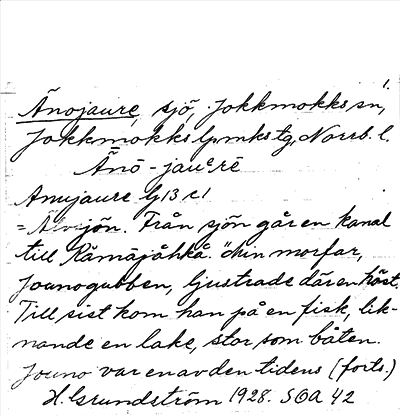 1.
Änojaure, sjö, Jokkmokks sn,
Jokkmokks lpmks tg, Norrb. l.
Ānō - jauᵉrē
Anujaure G 13 c 1
= Älvsjön. Från sjön går en kanal
till Råmäjåhkå. "Min morfar,
Jounogubben, ljustrade där en höst.
Till sist kom han på en fisk, lik-
nande en lake, stor som båten.
Jouno var en av den tidens (forts.)
H. Grundström 1928. SOA 42